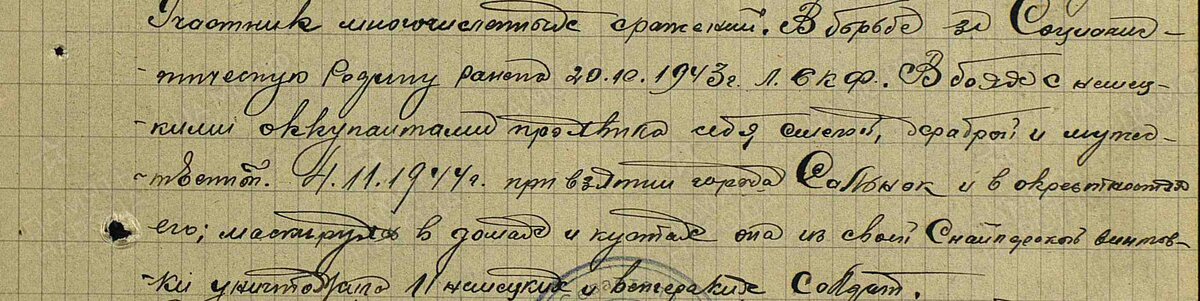 Участник многочисленных сражений. В борьбе за Социалис-
тическую Родину ранена 20.10.1943г. Л. В К Ф. В боях с немец-
кими оккупантами проявила себя смелой, храброй и мужес-
твенной. 4.11.1944г. при взятии города Сольнок и в окрестностях
его; маскируясь в домах и кустах она из своей Снайперской винтов-
ки уничтожила 11 немецких и венгерских солдат.